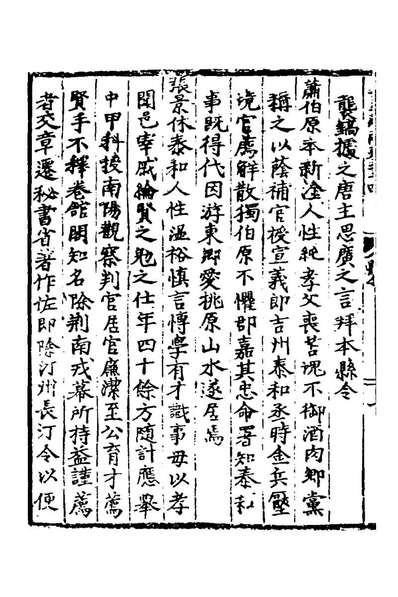 龔鎬據之唐主思廣之言拜本縣令
蕭伯原本新塗人性純孝父喪苫塊不御酒肉鄉黨
稱之以蔭補官授宣義郎吉州泰和丞時金兵壓
境官屬解散獨伯原不懼郡嘉其忠命署知泰和
事既得代因游東鄉愛桃原山水遂居焉
張景休泰和人性溫裕慎言博學有才識事母以孝
聞邑宰戚綸賢之勉之仕年四十餘方隨計應舉
中甲科授南陽觀察判官居官廉潔至公育才薦
賢手不釋卷館閣知名除荆南戎幕所持益謹薦
者交章遷秘書省著作佐郎除汀州長汀令以便